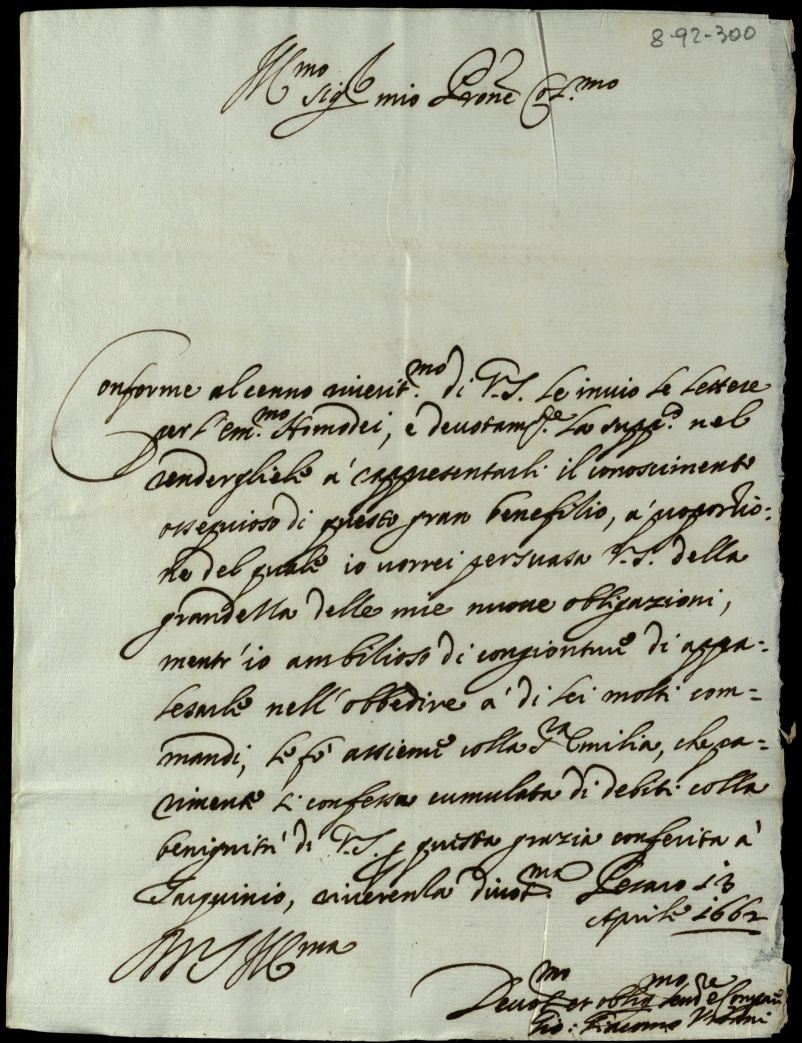 8-92-300
Ill.mo
Sig.r mio P̃rone Col.mo
Conforme al cenno riverit.mo di V.S. le invio le lettere
per l'em.mo Homodei, e devotam.te la supp.co nel
rendergliele à rappresentarli il conoscimento
ossequioso di questo gran benefitio, à proportio=
ne del quale io vorrei persuasa V.S. della
grandezza delle mie nuove obligazioni,
mentr'io ambitioso di congionture di appa=
lesarle nell'obbedire a' di lei molti com=
mandi, le fò assieme colla S.ra Emilia, che pa=
rimente si confessa cumulata di debiti colla
benignità di V.S. p questa grazia conferita à
Tarquinio, riverenza divot.ma Pesaro 13
Aprile 1662
Di V.S. Ill.ma
Devot.mo et oblig.mo Ser.re
Gio: Giacomo